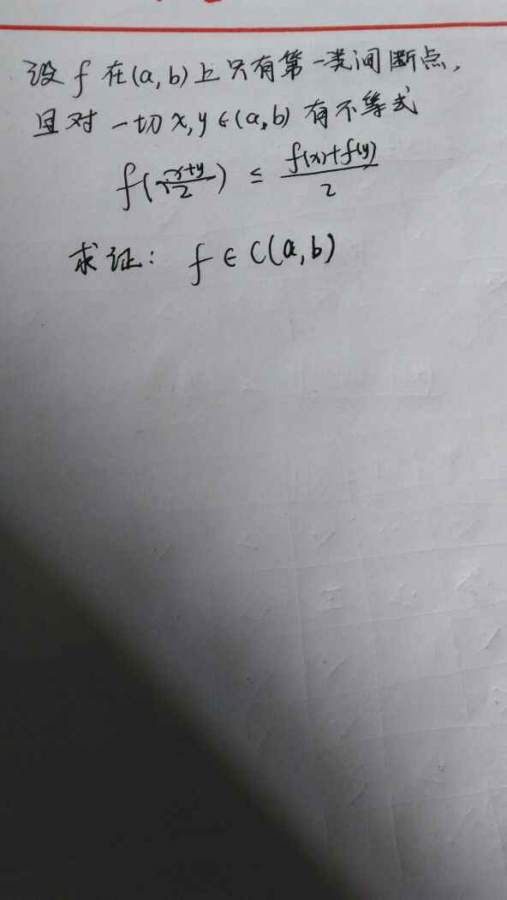 设 f 在(a,b)上只有第一类间断点,
且对一切 x,y∈(a,b) 有不等式
f(\frac{x+y}{2}) ≤ \frac{f(x)+f(y)}{2}
求证: f ∈ C(a,b)